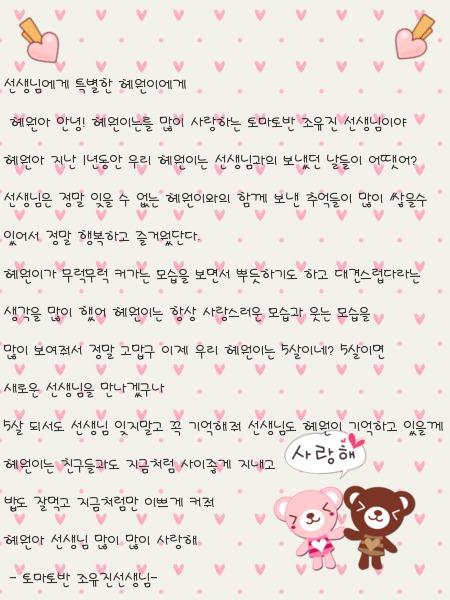 선생님에게 특별한 혜원이에게
혜원아 안녕! 혜원이는를 많이 사랑하는 토마토반 조유진 선생님이야
혜원아 지난 1년동안 우리 혜원이는 선생님과의 보냈던 날들이 어땟어?
선생님은 정말 잊을 수 없는 혜원이와의 함께 보낸 추억들이 많이 쌓을수
있어서 정말 행복하고 즐거웠단다.
혜원이가 무럭무럭 커가는 모습을 보면서 뿌듯하기도 하고 대견스럽다라는
생각을 많이 했어 혜원이는 항상 사랑스러운 모습과 웃는 모습을
많이 보여줘서 정말 고맙구 이제 우리 혜원이는 5살이네? 5살이면
새로운 선생님을 만나겠구나
5살 되서도 선생님 잊지말고 꼭 기억해줘 선생님도 혜원이 기억하고 있을게
사랑해
혜원이는 친구들과도 지금처럼 사이좋게 지내고
밥도 잘먹고 지금처럼만 이쁘게 커줘
혜원아 선생님 많이 많이 사랑해
- 토마토반 조유진선생님-